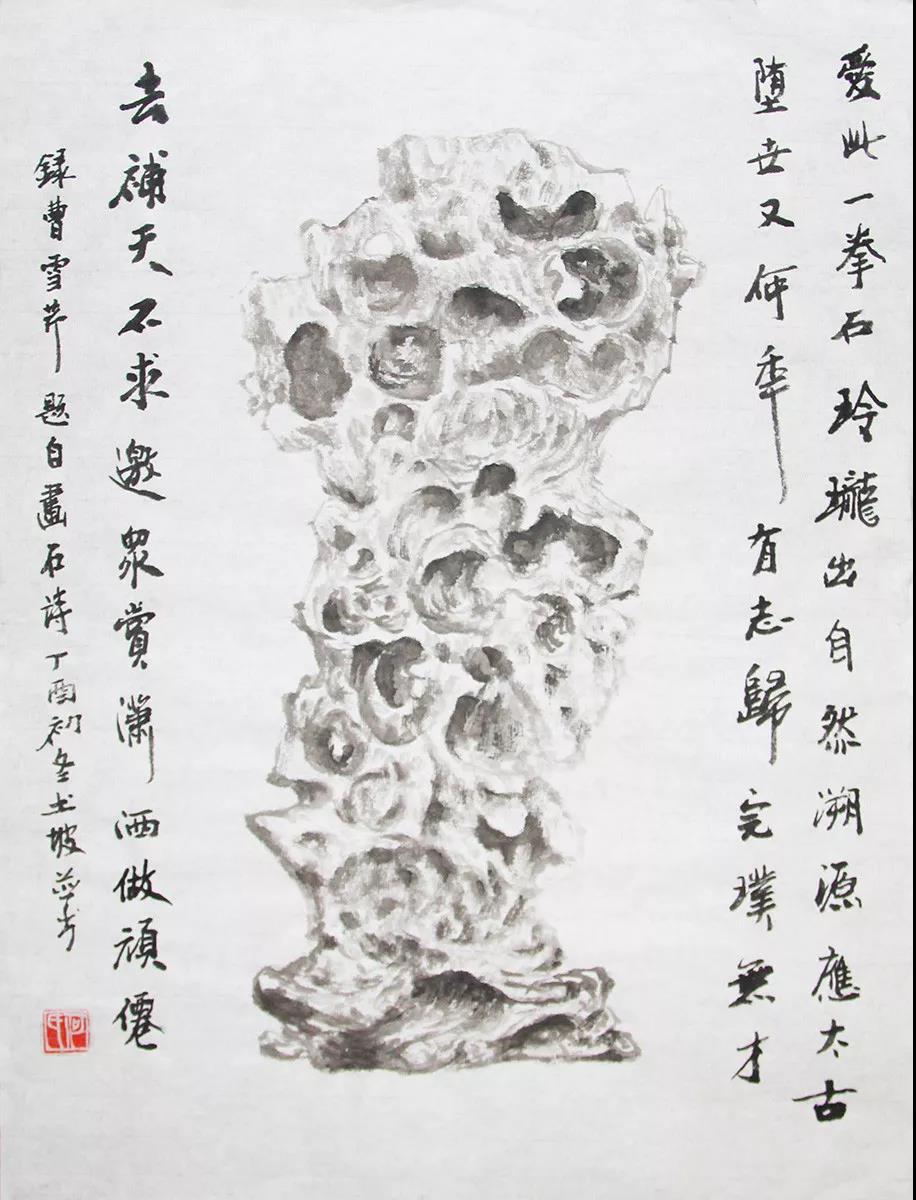 愛此一拳石玲瓏出自然溯源應太古
墮世又何年有志歸完璞無才
去補天不求邀眾賞瀟洒做頑僊
錄曹雪芹題自畫石詩丁酉初冬土坡